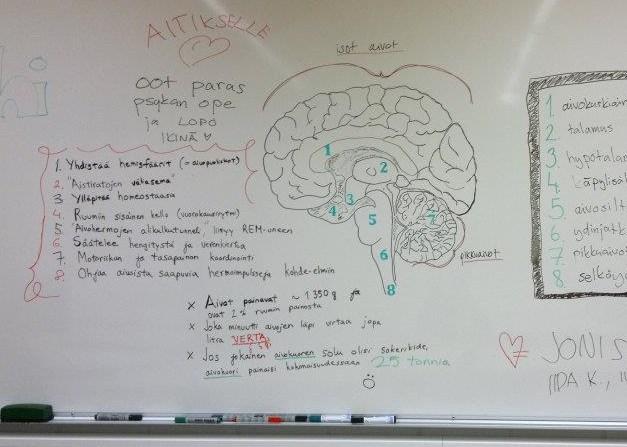 hi
ÄITIKSELLE
oot paras
psykan ope
ja LOPO
IKINÄ
isot aivot
1. Yhdistää hemisfäärit (= aivopuoliskot)
2. "Aistiratojen väliasema"
3 Ylläpitää homeostaasia
4. Ruumiin sisäinen kello (vuorokausirytmi)
5 "Aivohermojen alikulkutunneli", liittyy REM-uneen
6 Säätelee hengitystä ja verenkiertoa
7. Motoriikan ja tasapainon koordinointi
8. Ohjaa aivoista saapuvia hermoimpulsseja kohde-elimiin
1
2
3
4
5
6
7
8
pikkuaivot
x Aivot painavat ~ 1350 g ja
ovat 2 % ruumiin painosta
x Joka minuutti aivojen läpi virtaa jopa
litra VERTA
x Jos jokainen aivokuoren solu olisi sokeripide,
aivokuori painaisi kokonaisuudessaan 25 tonnia
1 aivokurkiain
2. talamus
3. hypotalam
4. Käpylisäk
5. aivosilt
6. ydinjatk
7. pikkuaivot
8. selkäy
JONI S
IIDA K.,